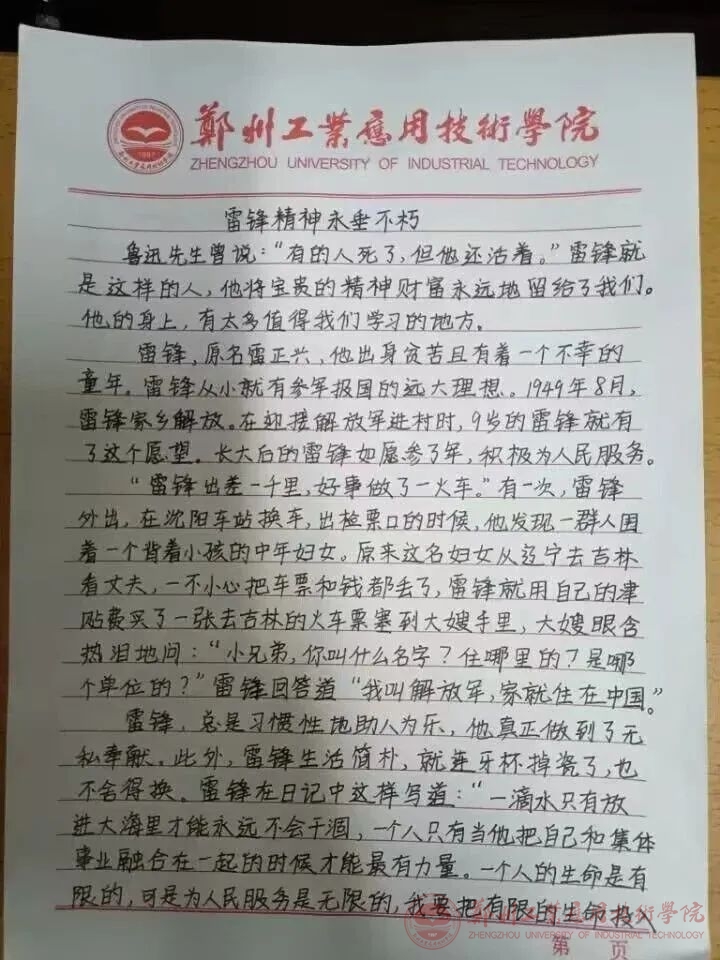 鄭州工業應用技術學院
ZHENGZHOU UNIVERSITY OF INDUSTRIAL TECHNOLOGY
雷锋精神永垂不朽
鲁迅先生曾说：“有的人死了，但他还活着。”雷锋就
是这样的人，他将宝贵的精神财富永远地留给了我们。
他的身上，有太多值得我们学习的地方。
雷锋，原名雷正兴，他出身贫苦且有着一个不幸的
童年。雷锋从小就有参军报国的远大理想。1949年8月，
雷锋家乡解放。在迎接解放军进村时，9岁的雷锋就有
了这个愿望。长大后的雷锋如愿参了军，积极为人民服务。
“雷锋出差一千里，好事做了一火车。”有一次，雷锋
外出，在沈阳车站换车，出检票口的时候，他发现一群人围
着一个背着小孩的中年妇女。原来这名妇女从辽宁去吉林
看丈夫，一不小心把车票和钱都丢了，雷锋就用自己的津
贴费买了一张去吉林的火车票塞到大嫂手里，大嫂眼含
热泪地问：“小兄弟，你叫什么名字？住哪里的？是哪
个单位的？”雷锋回答道“我叫解放军，家就住在中国。”
雷锋，总是习惯性地助人为乐，他真正做到了无
私奉献。此外，雷锋生活简朴，就连牙杯掉瓷了，也
不舍得换。雷锋在日记中这样写道：“一滴水只有放
进大海里才能永远不会干涸，一个人只有当他把自己和集体
事业融合在一起的时候才能最有力量。一个人的生命是有
限的，可是为人民服务是无限的，我要把有限的生命投入
鄭州工業應用技術學院
ZHENGZHOU UNIVERSITY OF INDUSTRIAL TECHNOLOGY
第 页